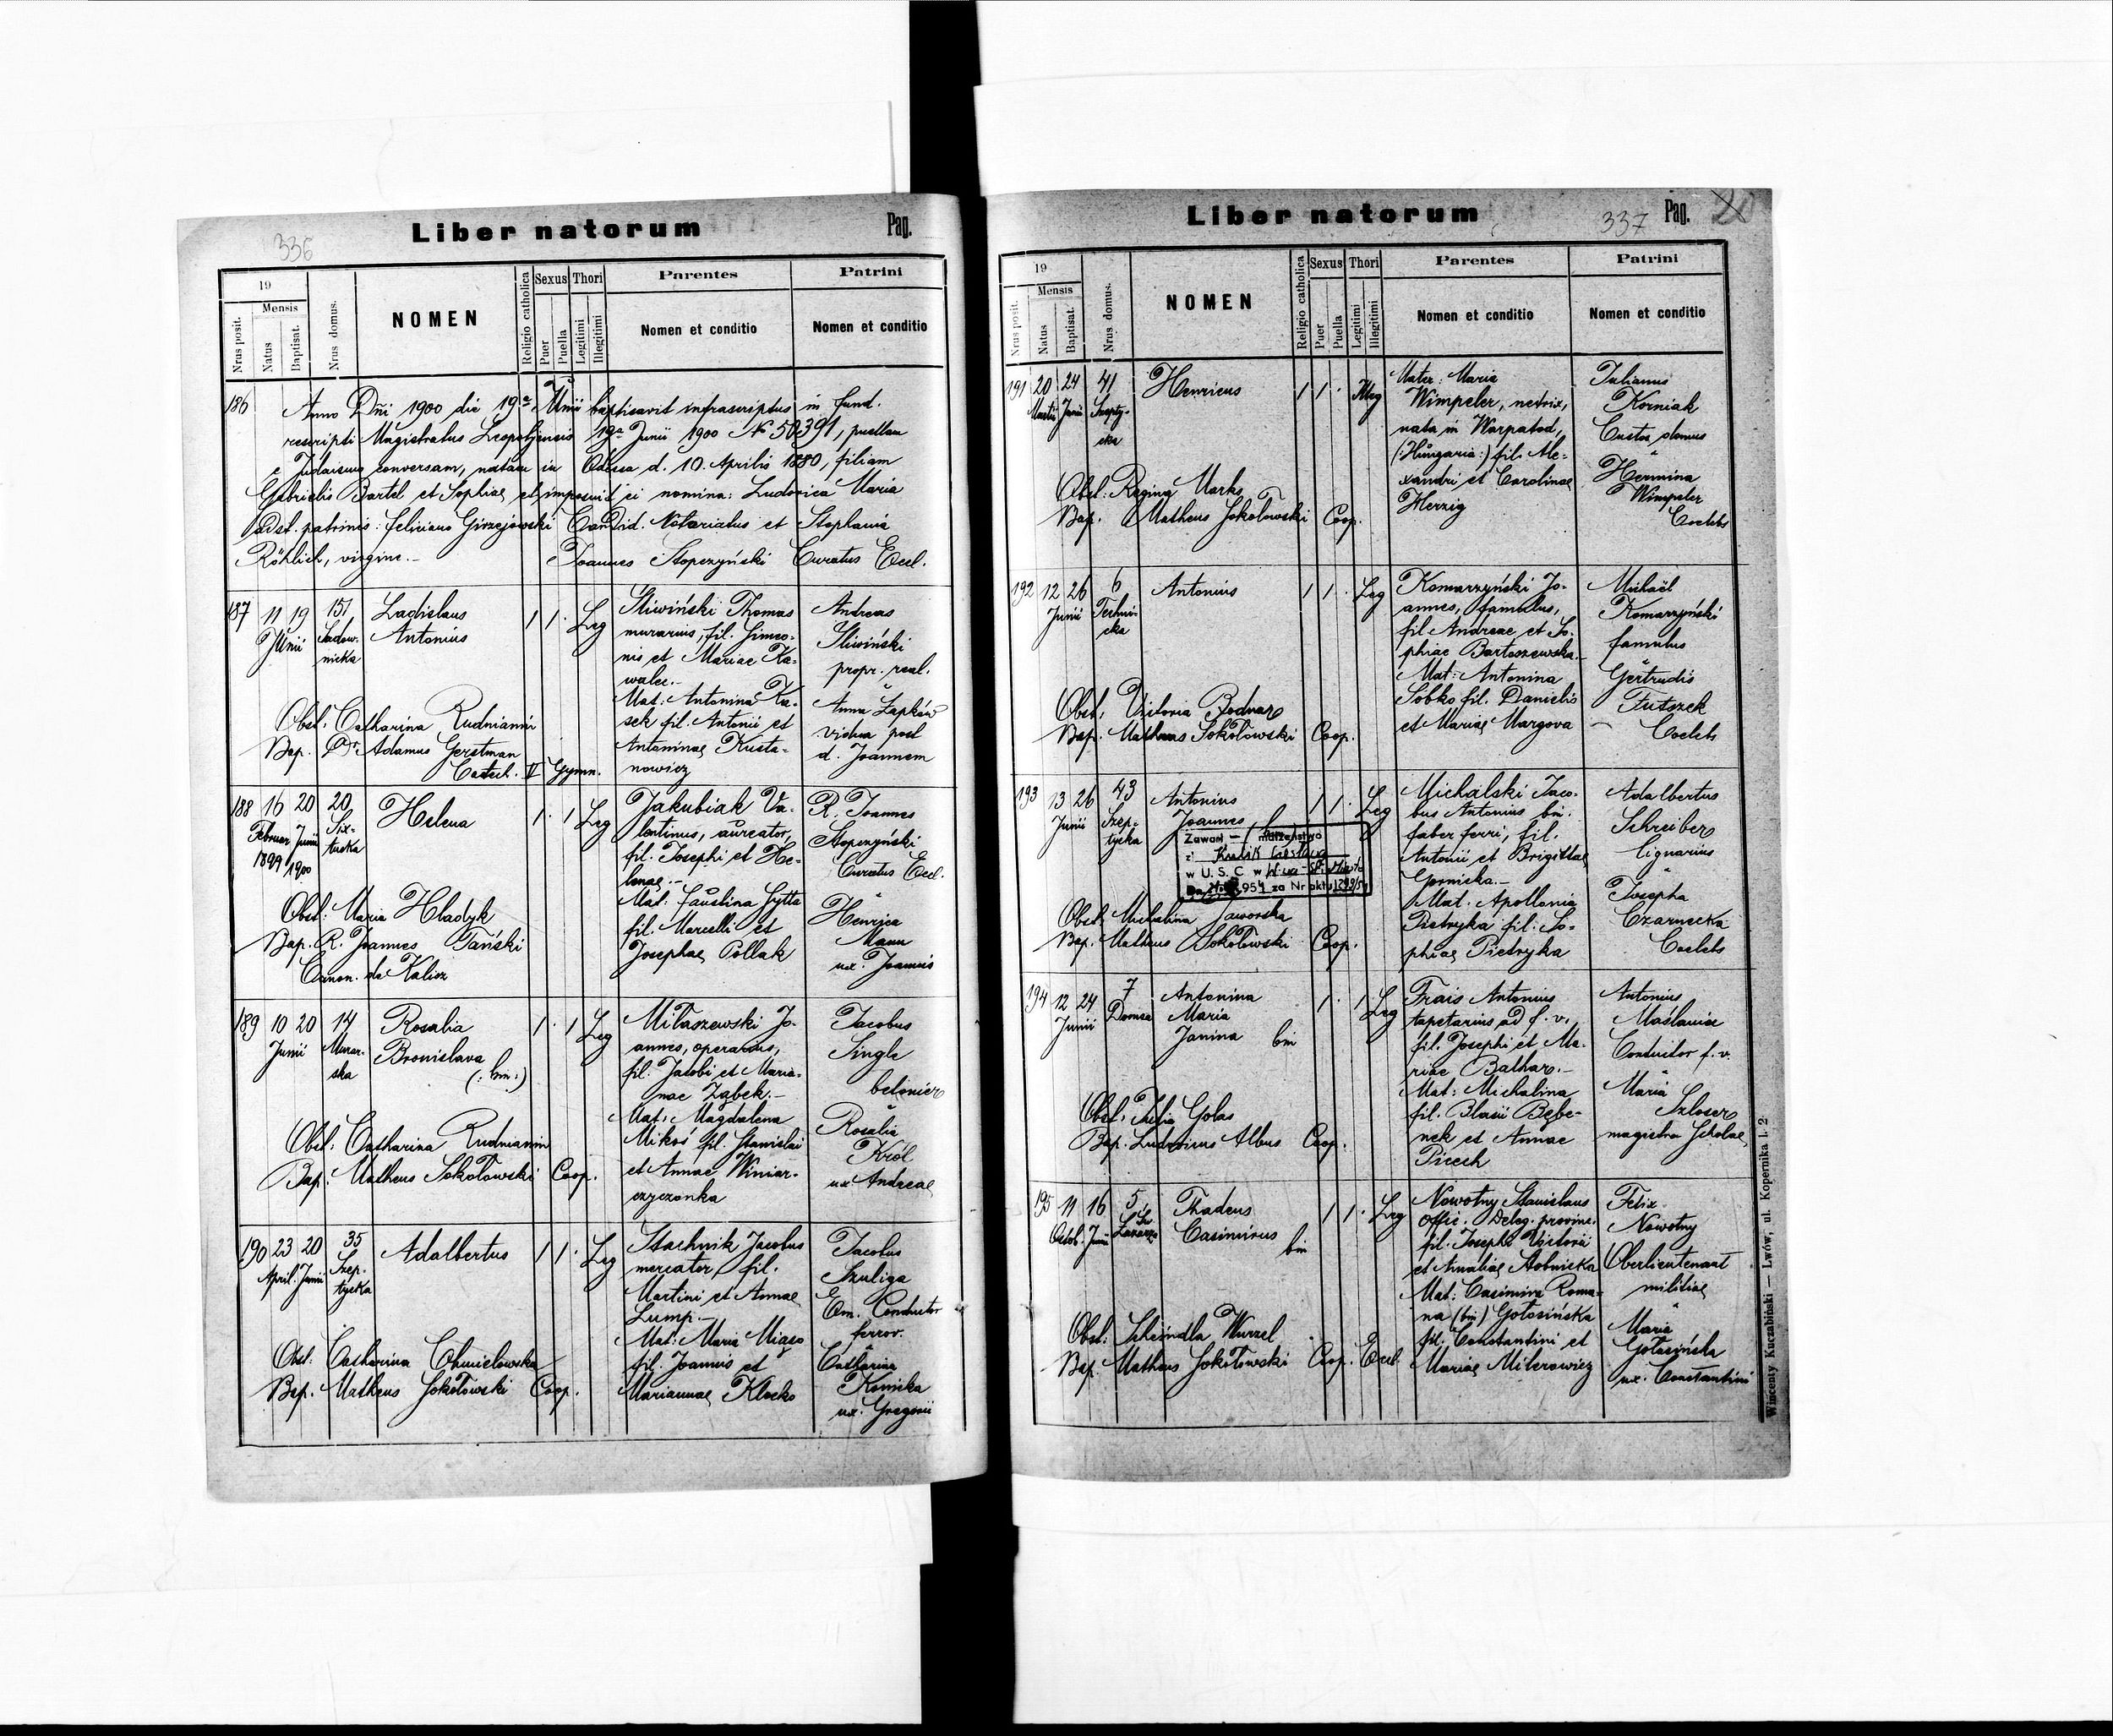 336
Liber natorum
Pag.
19
Mensis
Nrus posit.
Natus
Baptisat.
Nrus domus.
NOMEN
Religio catholica
Sexus
Puer
Puella
Thori
Legitimi
Illegitimi
Parentes
Nomen et conditio
Patrini
Nomen et conditio
186 Anno Dñi 1900 die 19ª Junii baptisavit infrascriptus in fund.
rescripti Magistratus Leopoliensis 19ª Junii 1900 № 50391, puellam
e Judaismo conversam, natam in Odessa d. 10. Aprilis 1880, filiam
Gabrielis Bartel et Sophiae et imposuit ei nomina: Ludovica Maria
adst. patrinis: Feliciano Girzejowski Candid. Notariatus et Stephania
Röhlich, virgine.- Joannes Stopczyński Curatus Eccl.
187 11 19 Junii
151 Sadow-
nicka
Ladislaus
Antonius
1 1 Leg
Śliwiński Thomas
murarius, fil. Simeo-
nis et Mariae Ka-
walec.-
Mat: Antonina Ku-
sek fil. Antonii et
Antoninae Kusta-
nowicz
Andreas
Śliwiński
propr. real.
Anna Łapków
vidua post
d. Joannem
Obst: Catharina Rudnianin
Bap. Dr Adamus Gerstman
Catech. IV Gymn.
188 16 20
Februar Junii
1899 1900
20
Six-
tuska
Helena
1 1 Leg
Jakubiak Va-
lentinus, aureator,
fil. Josephi et He-
lenae.-
Mat: Faustina Gytta
fil. Marcelli et
Josephae Pollak
R. Joannes
Stopczyński
Curatus Eccl.
Henrica
Mann
ux. Joannis
Obst: Maria Hladyk
Bap. R. Joannes Tański
Canon. de Kalisz
189 10 20
Junii
14
Murar-
ska
Rosalia
Bronislava
(: bin :)
1 1 Leg
Miłaszewski Jo-
annes, operarius,
fil. Jacobi et Maria-
nae Ząbek.-
Mat: Magdalena
Mikoś fil. Stanislai
et Annae Winiar-
czyczonka
Jacobus
Single
betonier
Rosalia
Król
ux Andreae
Obst: Catharina Rudnianin
Bap: Matheus Sokołowski Coop.
190 23 20
April. Junii
35
Szep-
tycka
Adalbertus
1 1 Leg
Stachnik Jacobus
mercator, fil.
Martini et Annae
Lump.-
Mat: Maria Miaso
fil. Joannis et
Mariannae Klocko
Jacobus
Szuliga
Em. Conductor
ferrov.
Catharina
Konicka
ux. Gregorii
Obst: Catharina Chmielowska
Bap. Matheus Sokołowski Coop.
Liber natorum
337
Pag.
19
Mensis
Nrus posit.
Natus
Baptisat.
Nrus domus.
NOMEN
Religio catholica
Sexus
Puer
Puella
Thori
Legitimi
Illegitimi
Parentes
Nomen et conditio
Patrini
Nomen et conditio
191 20 24
Martii Junii
41
Szepty-
cka
Henricus
1 1 Illeg
Mater: Maria
Wimpeler, netrix,
nata in Warpatod,
(:Hungaria:) fil. Ale-
xandri et Carolinae
Herzig
Julianus
Korniak
Custos domus
Hermina
Wimpeler
Coelebs
Obst: Regina Marks
Bap. Matheus Sokołowski Coop.
192 12 26
Junii
6
Techni-
cka
Antonius
1 1 Leg
Komarzyński Jo-
annes, famulus,
fil Andreae et So-
phiae Bartoszewska.-
Mat: Antonina
Sobko fil. Danielis
et Mariae Margova
Michaël
Komarzyński
famulus
Gertrudis
Futszek
Coelebs
Obst: Victoria Bodnar
Bap. Matheus Sokołowski Coop.
193 13 26
Junii
43
Szep-
tycka
Antonius
Joannes
1 1 Leg
Zawarł małżeństwo
w U. S. C w
za Nr aktu
Michalski Jaco-
bus Antonius bin.
faber ferri, fil.
Antonii et Brigittae
Gornicka.-
Mat: Apollonia
Pietryka fil. So-
phiae Pietryka
Adalbertus
Schreiber
lignarius
Josepha
Czarnecka
Coelebs
Obst: Michalina Jaworska
Bap. Matheus Sokołowski Coop.
194 12 24
Junii
7
Domsa
Antonina
Maria
Janina bin
1 1 Leg
Frais Antonius
tapetarius ad f. v.,
fil. Josephi et Ma-
riae Balthar.-
Mat: Michalina
fil. Blasii Bębe-
nek et Annae
Piech
Antonius
Maślanice
Conductor f. v.
Maria
Szloser
magistra Scholae
Obst: Julia Golas
Bap. Ludovicus Albus Coop.
195 11 16
Octob. Junii
5
Św.
Łazarza
Thadeus
Casimirus bin
1 1 Leg
Nowotny Stanislaus
offic. Deleg. provinc.
fil. Josephi Victorii
et Amaliae Stobnicka
Mat: Casimira Roma-
na (bin) Gołosińska
fil. Constantini et
Mariae Milerowicz
Felix
Nowotny
Oberlieutenant
militiae
Maria
Gołosińska
ux. Constantini
Obst: Scheindla Wurzel
Bap. Matheus Sokołowski Coop. Eccl.
Wincenty Kuczabiński — Lwów, ul. Kopernika l. 2